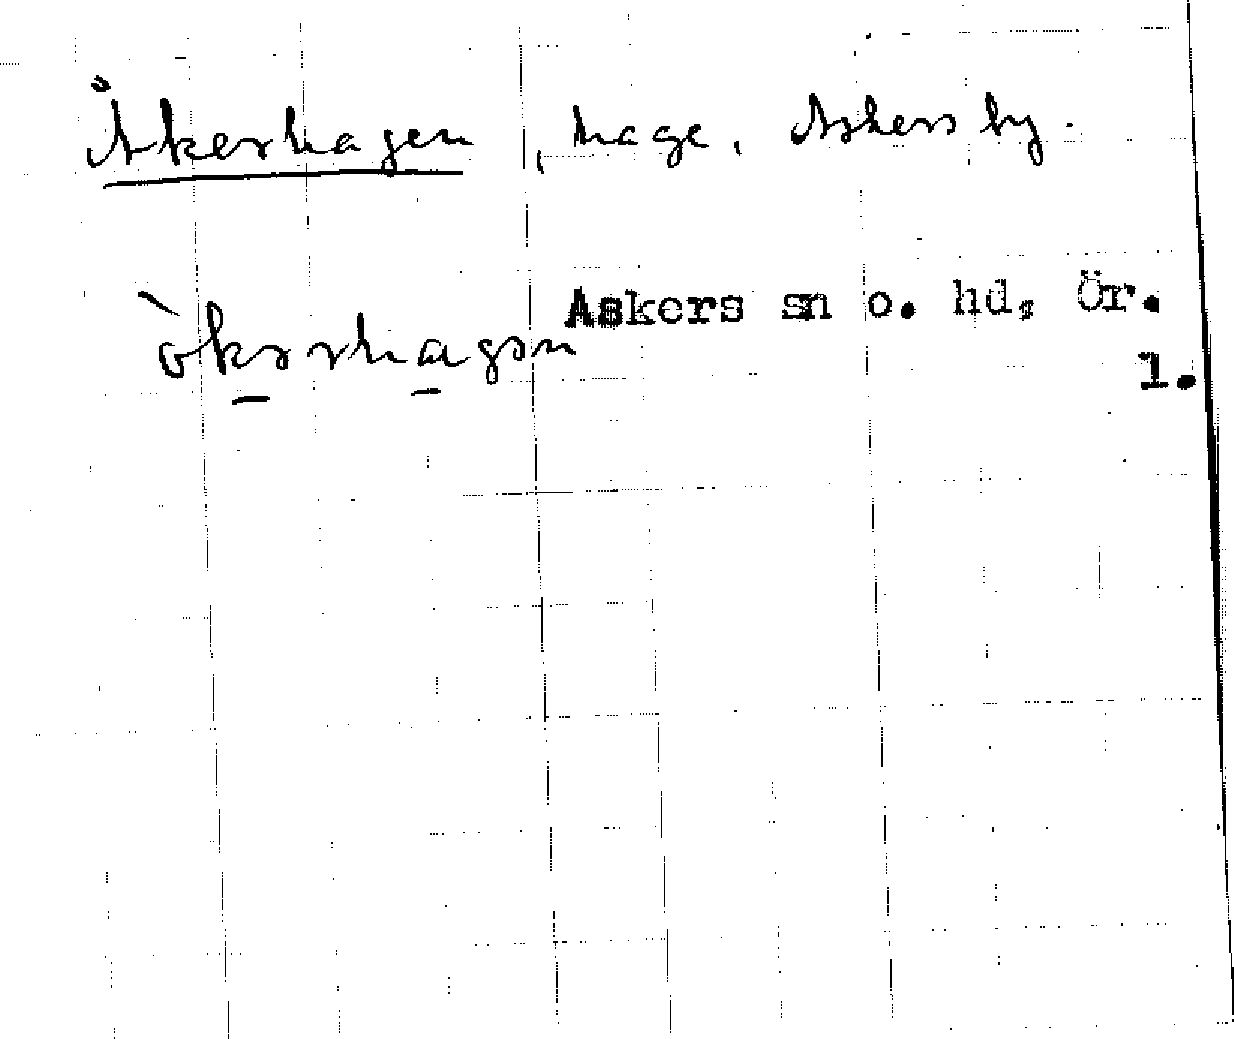 Åkerhagen, hage, Askers by.
Askers sn o. hd, Ör.
òkərhagən
1.